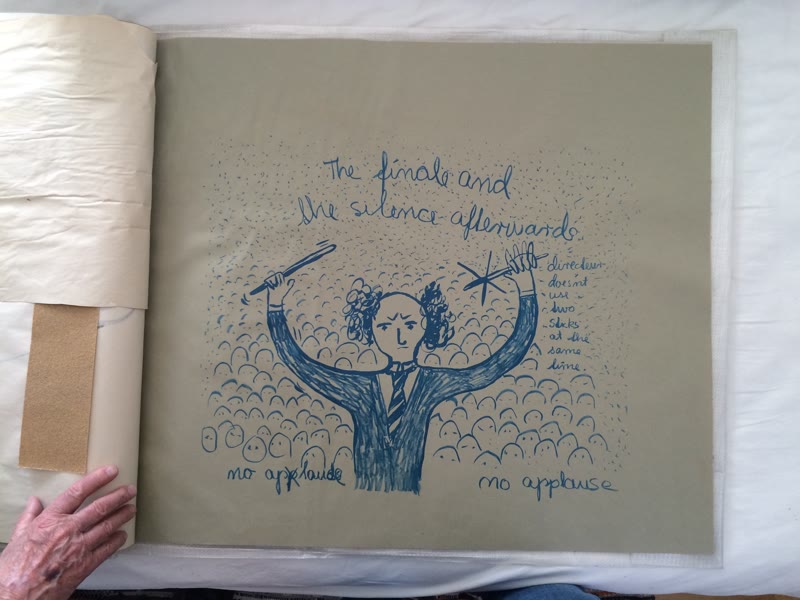 The finale and
the silence afterwards.
directeur
doesnt
use
two
sticks
at the
same
time.
no applaude
no applause